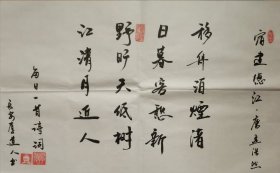 宿建德江·唐孟浩然
移舟泊煙渚
日暮客愁新
野旷天低樹
江清月近人
每日一首诗词
人书